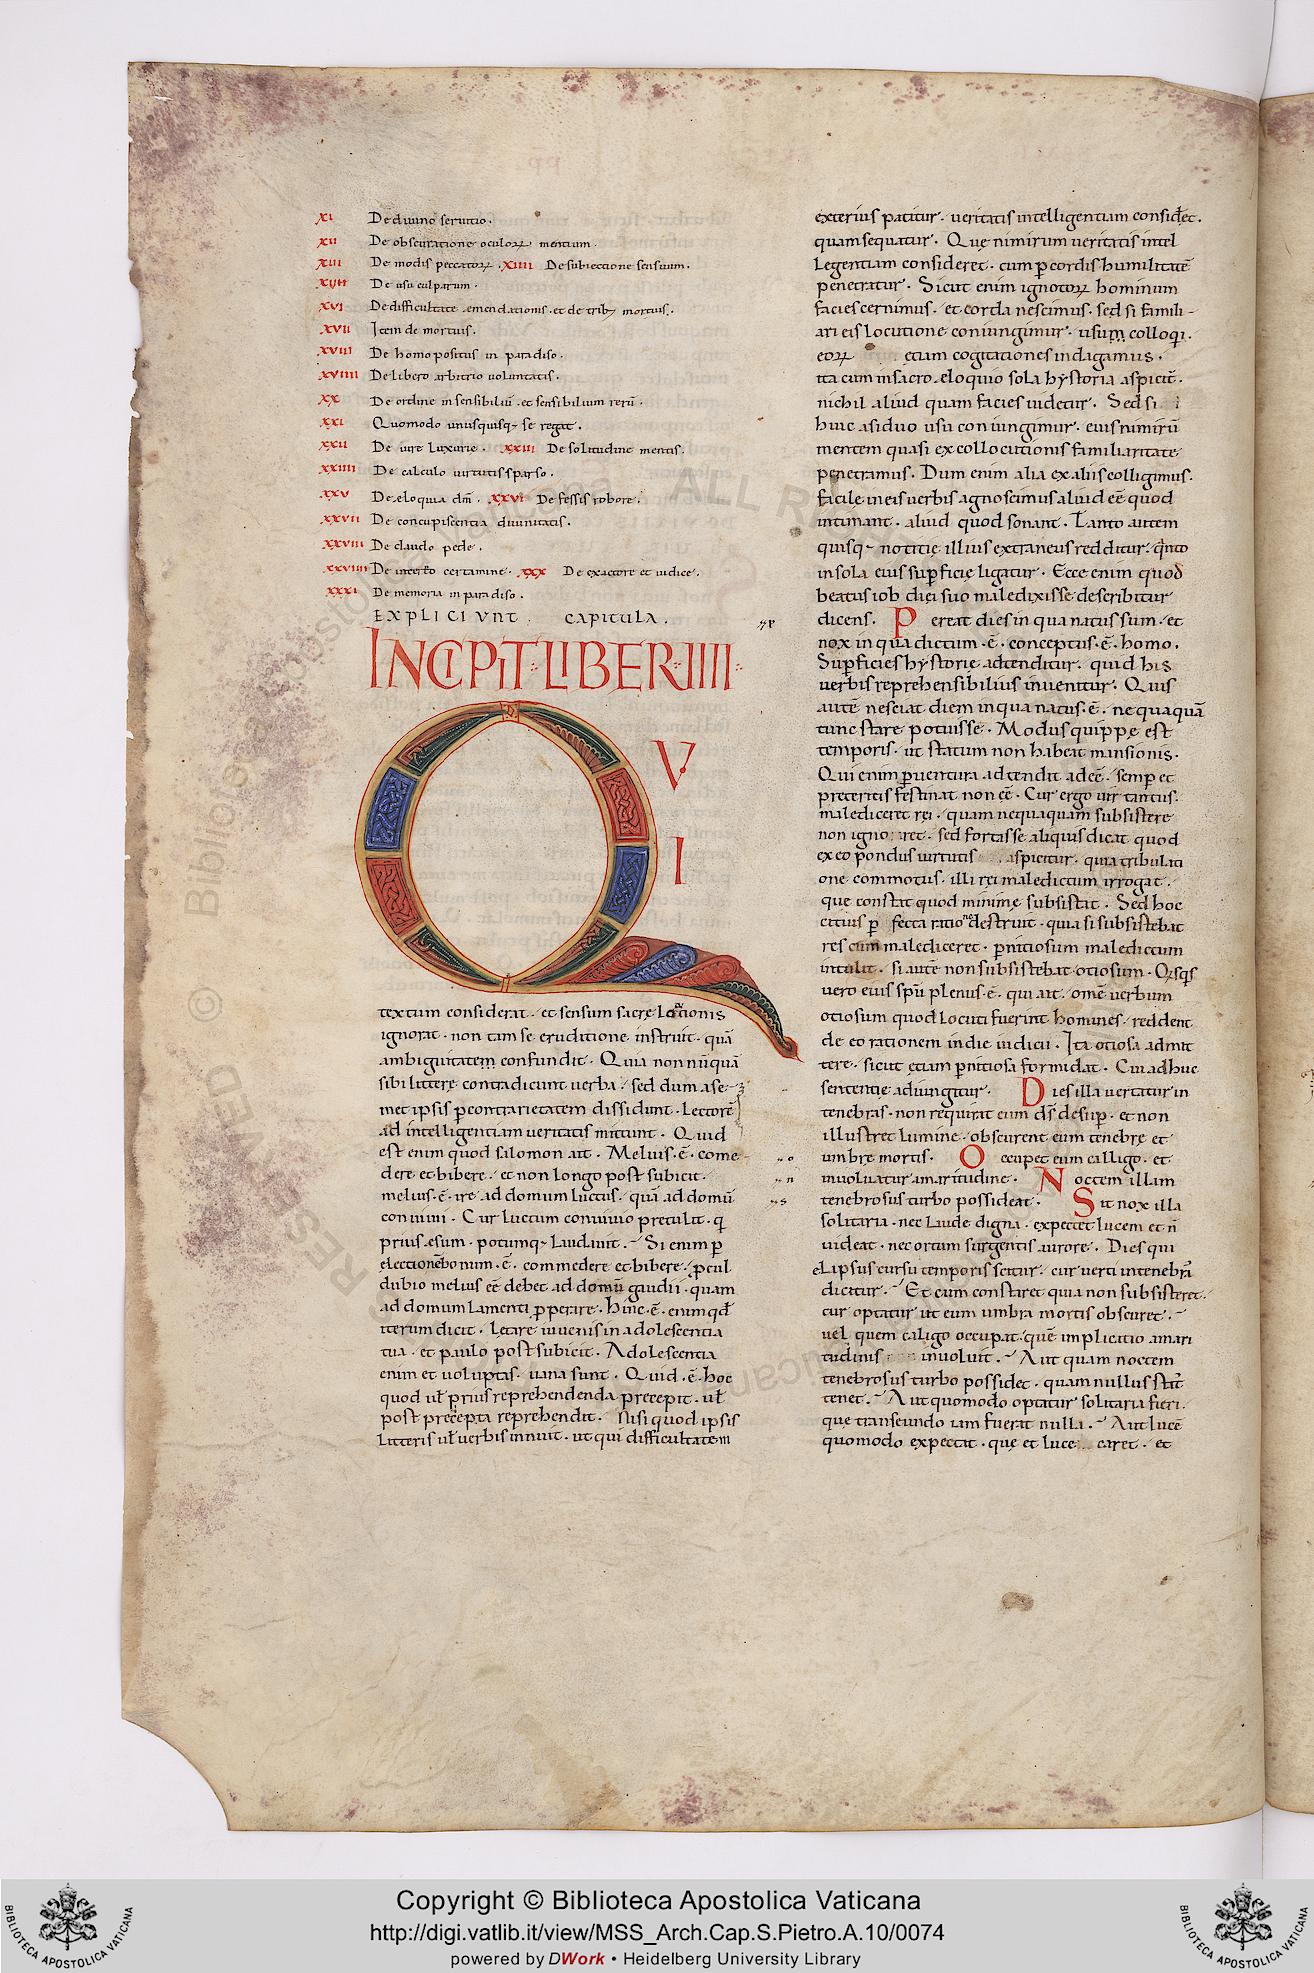 XI De divino servitio.
XII De obscuratione oculoꝝ mentium.
XIII De modis peccatoꝝ. XIIII De subiectione sensuum.
XV De usu culparum.
XVI De difficultate emendationis. et de trib; mortuis.
XVII Item de mortuis.
XVIII De homo positus in paradiso.
XVIIII De libero arbitrio voluntatis.
XX De ordine insensibiliū. et sensibilium rerū.
XXI Quomodo unusquisq; se regat.
XXII De vire luxurie. XXIII De solitudine mentis.
XXIIII De calculo virtutis sparso.
XXV De eloquia dm̄. XXVI De fessis robore.
XXVII De concupiscentia divinitatis.
XXVIII De claudo pede.
XXVIIII De certamine. XXX De exactore et iudice.
XXXI De memoria in paradiso.
EXPLICIUNT CAPITULA.
INCIPIT LIBER IIII
QVI
textum considerat. et sensum sacre locationis
ignorat. non tam se eruditione instruit. quā
ambiguitatem confundit. Quia non nūquā
sibi littere contradicunt verba. sed dum a se
met ipsis p̄ contrarietatem dissidunt. Lectorē
ad intelligentiam veritatis mittunt. Quid
est enim quod salomon ait. Melius. ē. come
dere et bibere. et non longo post subicit.
melius. ē. ire ad domum luctus. quā ad domū
convivii. Cur luctum convivio pretulit. q
prius esum. potumq; laudavit. Si enim p̄
electionē bonum. ē. commedere et bibere. p̄cul
dubio melius eē debet ad domū gaudii. quam
ad domum lamenti p̄perare. hinc. ē. enim qd̄
iterum dicit. Letare iuvenis in adolescentia
tua. et paulo post subicit. Adolescentia
enim et voluptas. vana sunt. Quid. ē. hoc
quod vł prius reprehendenda precepit. vł
post precepta reprehendit. Nisi quod ipsis
litteris vł verbis innuit. ut qui difficultatem
exterius patitur. veritatis intelligentiam consideret.
quam sequatur. Que nimirum veritatis intel
legentiam consideret. cum p̄ cordis humilitatē
penetratur. Sicut enim ignotoꝝ hominum
facies cernimus. et corda nescimus. sed si famili-
ari eis locutione coniungimur. usum colloqi.
eoꝝ etiam cogitationes indagamus.
ita cum in sacro eloquio sola hystoria aspicit̄.
nichil aliud quam facies videtur. Sed si
huic asiduo usu coniungimur. eius nimirū
mentem quasi ex collocutionis familiaritate
penetramus. Dum enim alia ex aliis colligimus.
facile in eis verbis agnoscimus aliud eē quod
intimant. aliud quod sonant. Tanto autem
quisq; notitie illius extraneus redditur. q̄nto
in sola eius sup̄ficie ligatur. Ecce enim quod
beatus iob diei suo maledixisse describitur
dicens. Pereat dies in qua natus sum. et
nox in qua dictum. ē. conceptus. ē. homo.
Sup̄ficies hystorie adtenditur. quid his
verbis reprehensibilius invenitur. Quis
autē nesciat diem in qua natus. ē. nequaquā
tunc stare potuisse. Modus quippe est
temporis. ut statum non habeat mansionis.
Qui enim p̄ ventura adtendit ad eē. semp̄ et
preteritis festinat non eē. Cur ergo vir tantus.
malediceret rei. quam nequaquam subsistere
non ignoraret. sed fortasse aliquis dicat quod
ex eo pondus virtutis aspicitur. quia tribulati
one commotus. illi rei maledictum irrogat.
que constat quod minime subsistat. Sed hoc
citius p̄ fecta ratione destruit. quia si subsistebat
res cum malediceret. p̄nitiosum maledictum
intulit. si autē non subsistebat otiosum. Qsqs
vero eius sp̄u plenus. ē. qui ait. omē verbum
otiosum quod locuti fuerint homines. reddent
de eo rationem in die iudicii. Ita otiosa admit
tere. sicut etiam p̄nitiosa formidat. Cui adhuc
sententie adiungitur. Dies illa vertatur in
tenebras. non requirat eum ds̄ desup̄. et non
illustret lumine. obscurent eum tenebre et
umbre mortis. Occupet eum calligo. et
involvatur amaritudine. Noctem illam
tenebrosus turbo possideat. Sit nox illa
solitaria. nec laude digna. expectet lucem et n̄
videat. nec ortum surgentis aurore. Dies qui
elipsus cursu temporis scitur. cur verti in tenebrā
dicitur. Et cum constaret quia non subsisteret.
cur optatur ut eum umbra mortis obscuret.
vel quem caligo occupat. quē implicitio amari
tudinis involvit. Aut quam noctem
tenebrosus turbo possidet. quam nullus stat̄
tenet. Aut quomodo optatur solitaria fieri.
que transeundo iam fuerat nulla. Aut lucē
quomodo expectat. que et luce caret. et
Copyright © Biblioteca Apostolica Vaticana
http://digi.vatlib.it/view/MSS_Arch.Cap.S.Pietro.A.10/0074
powered by DWork • Heidelberg University Library
BIBLIOTECA APOSTOLICA VATICANA
BIBLIOTECA APOSTOLICA VATICANA